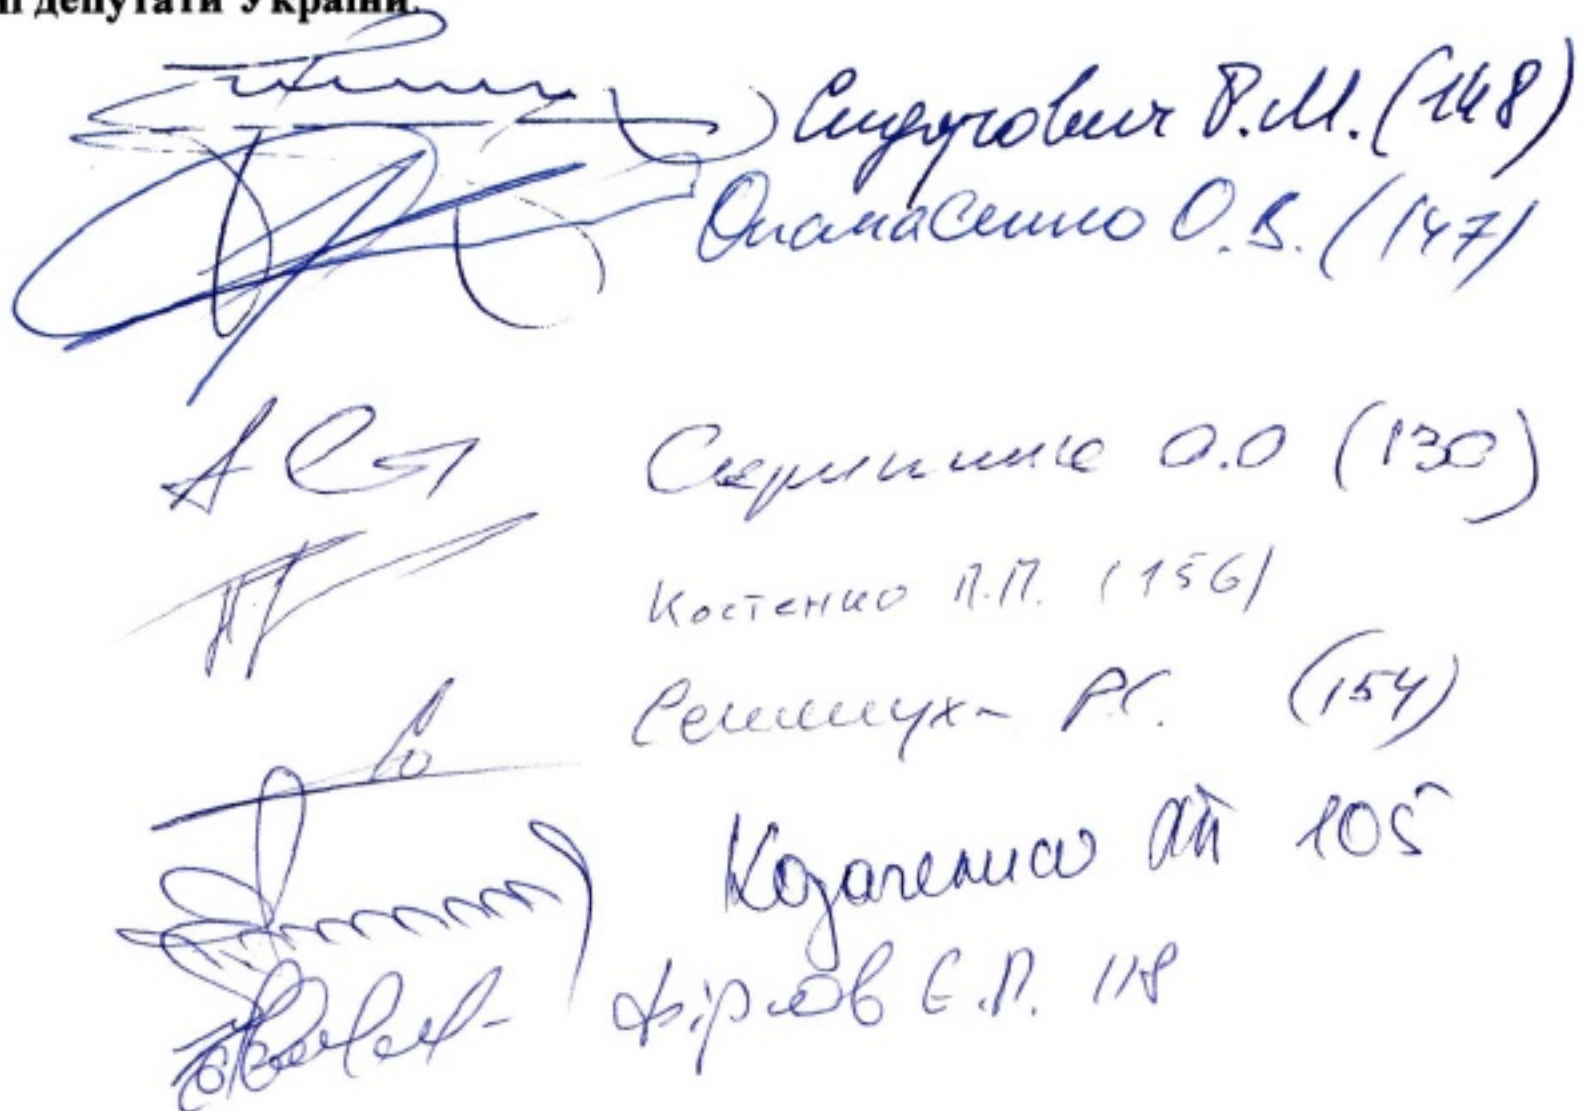 ні депутати України.
Сидорович Р.М. (148)
Опанасенко О.В. (147)
Скрипник О.О (130)
Костенко П.П. (156)
Семенуха Р.С. (154)
Козаченко ЛП 105
Фірсов Є.П. 118